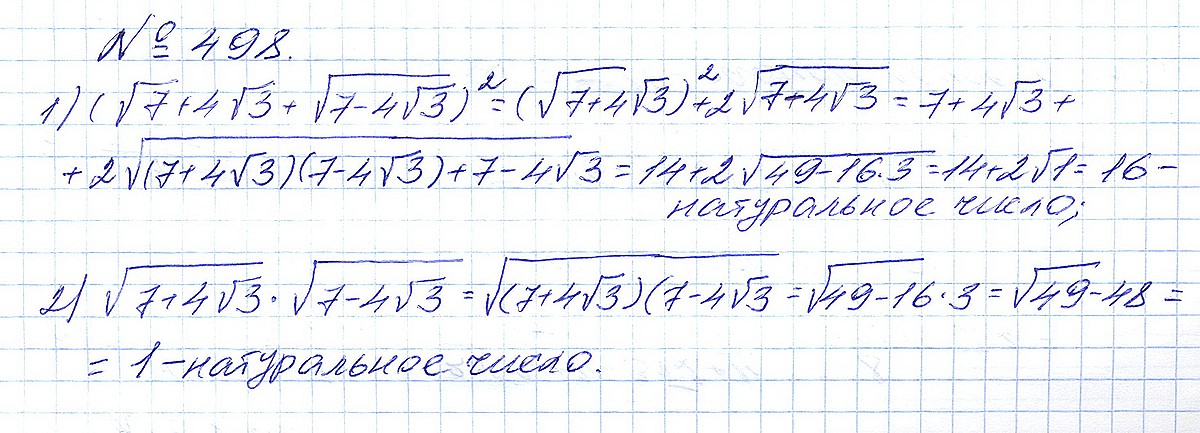 № 498.
1) (√7+4√3 + √(7-4√3))² = (√(7+4)√3)² + 2√(7+4√3) = 7+4√3 +
+ 2√((7+4√3)(7-4√3)+7-4√3) = 14+2√(49-16·3) = 14+2√1 = 16 -
натуральное число;
2) √(7+4√3) · √(7-4√3) = √((7+4√3)(7-4√3) = √(49-16)·3 = √49-48 =
= 1 - натуральное число.